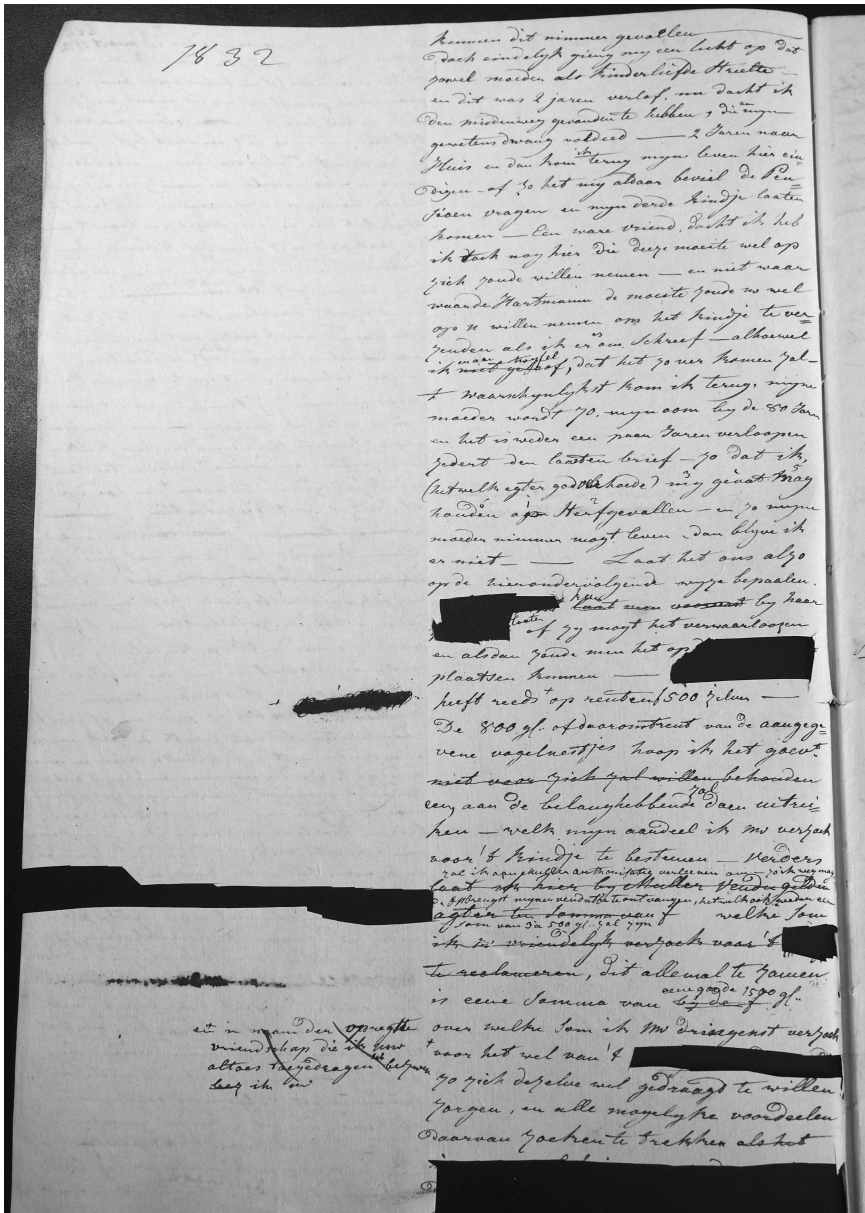 1832
kunnen dit nimmer gevallen
doch eindelyk gieng my een licht op dat
zowel moeder als kinderliefde
en dit was 2 jaren verlof. nu dacht ik
den middenweg gevonden te hebben, die aan myn
gewetensdwang voldeed — 2 Jaren naar
Huis en dan kom ik terug myn leven hier ein=
digen - of zo het my aldaar beviel de Pen=
sioen vragen en myn derde kindje laaten
komen — Een ware vriend, dacht ik heb
ik toch nog hier die deeze moeite wel op
zich zoude willen nemen — en niet waar
waarde Hartmann de moeite zoude uw wel
op u willen nemen om het kindje te ver=
zenden als ik er om Schreef — alhoewel
maar twyfel
ik niet geloof, dat het zo ver komen zal -
waarschynlykst kom ik terug. myne
moeder wordt 70. myn oom by de 80 Jaren
en het is weder een paar Jaren verloopen
zedert den laasten brief - zo dat ik,
(het welk egter god behoede) my
houden op Sterfgevallen - en zo myne
moeder nimmer mogt leven, dan blyve ik
er niet — Laat het ons alzo
op de hierondervolgende wyze bepaalen.
laat men by haar
laaten
of zy mogt het verwaarloozen
en alsdan zoude men het op
plaatsen kunnen —
heeft reeds op renten f 500 zilver —
De 800 gl. of daaromstrent van de aangege=
vene vogelnestjes hoop ik het
niet voor zich zal willen behouden
zal
en aan de belanghebbende doen uitrei=
ken — welk myn aandeel ik uw verzoek
voor 't kindje te bestemen — verders
laat ik hier by Muller Vendu gelden
agter te Somma van f welke Som
Som van 3 a 500 gl. zal zyn
ik vriendelyk verzoek voor 't
te reclameren, dit allemal te zamen
eene goede 1500 gl.
is eene Somma van by de f
over welke Som ik uw dringenst verzoek
voor het wel van 't
zo zich dezelve wel gedraagt te willen
zorgen, en alle mogelyke voordeelen
daarvan zoeken te trekken als het
en in naam der opregte
vriendschap die ik uw
altoes toegedragen
ik uw